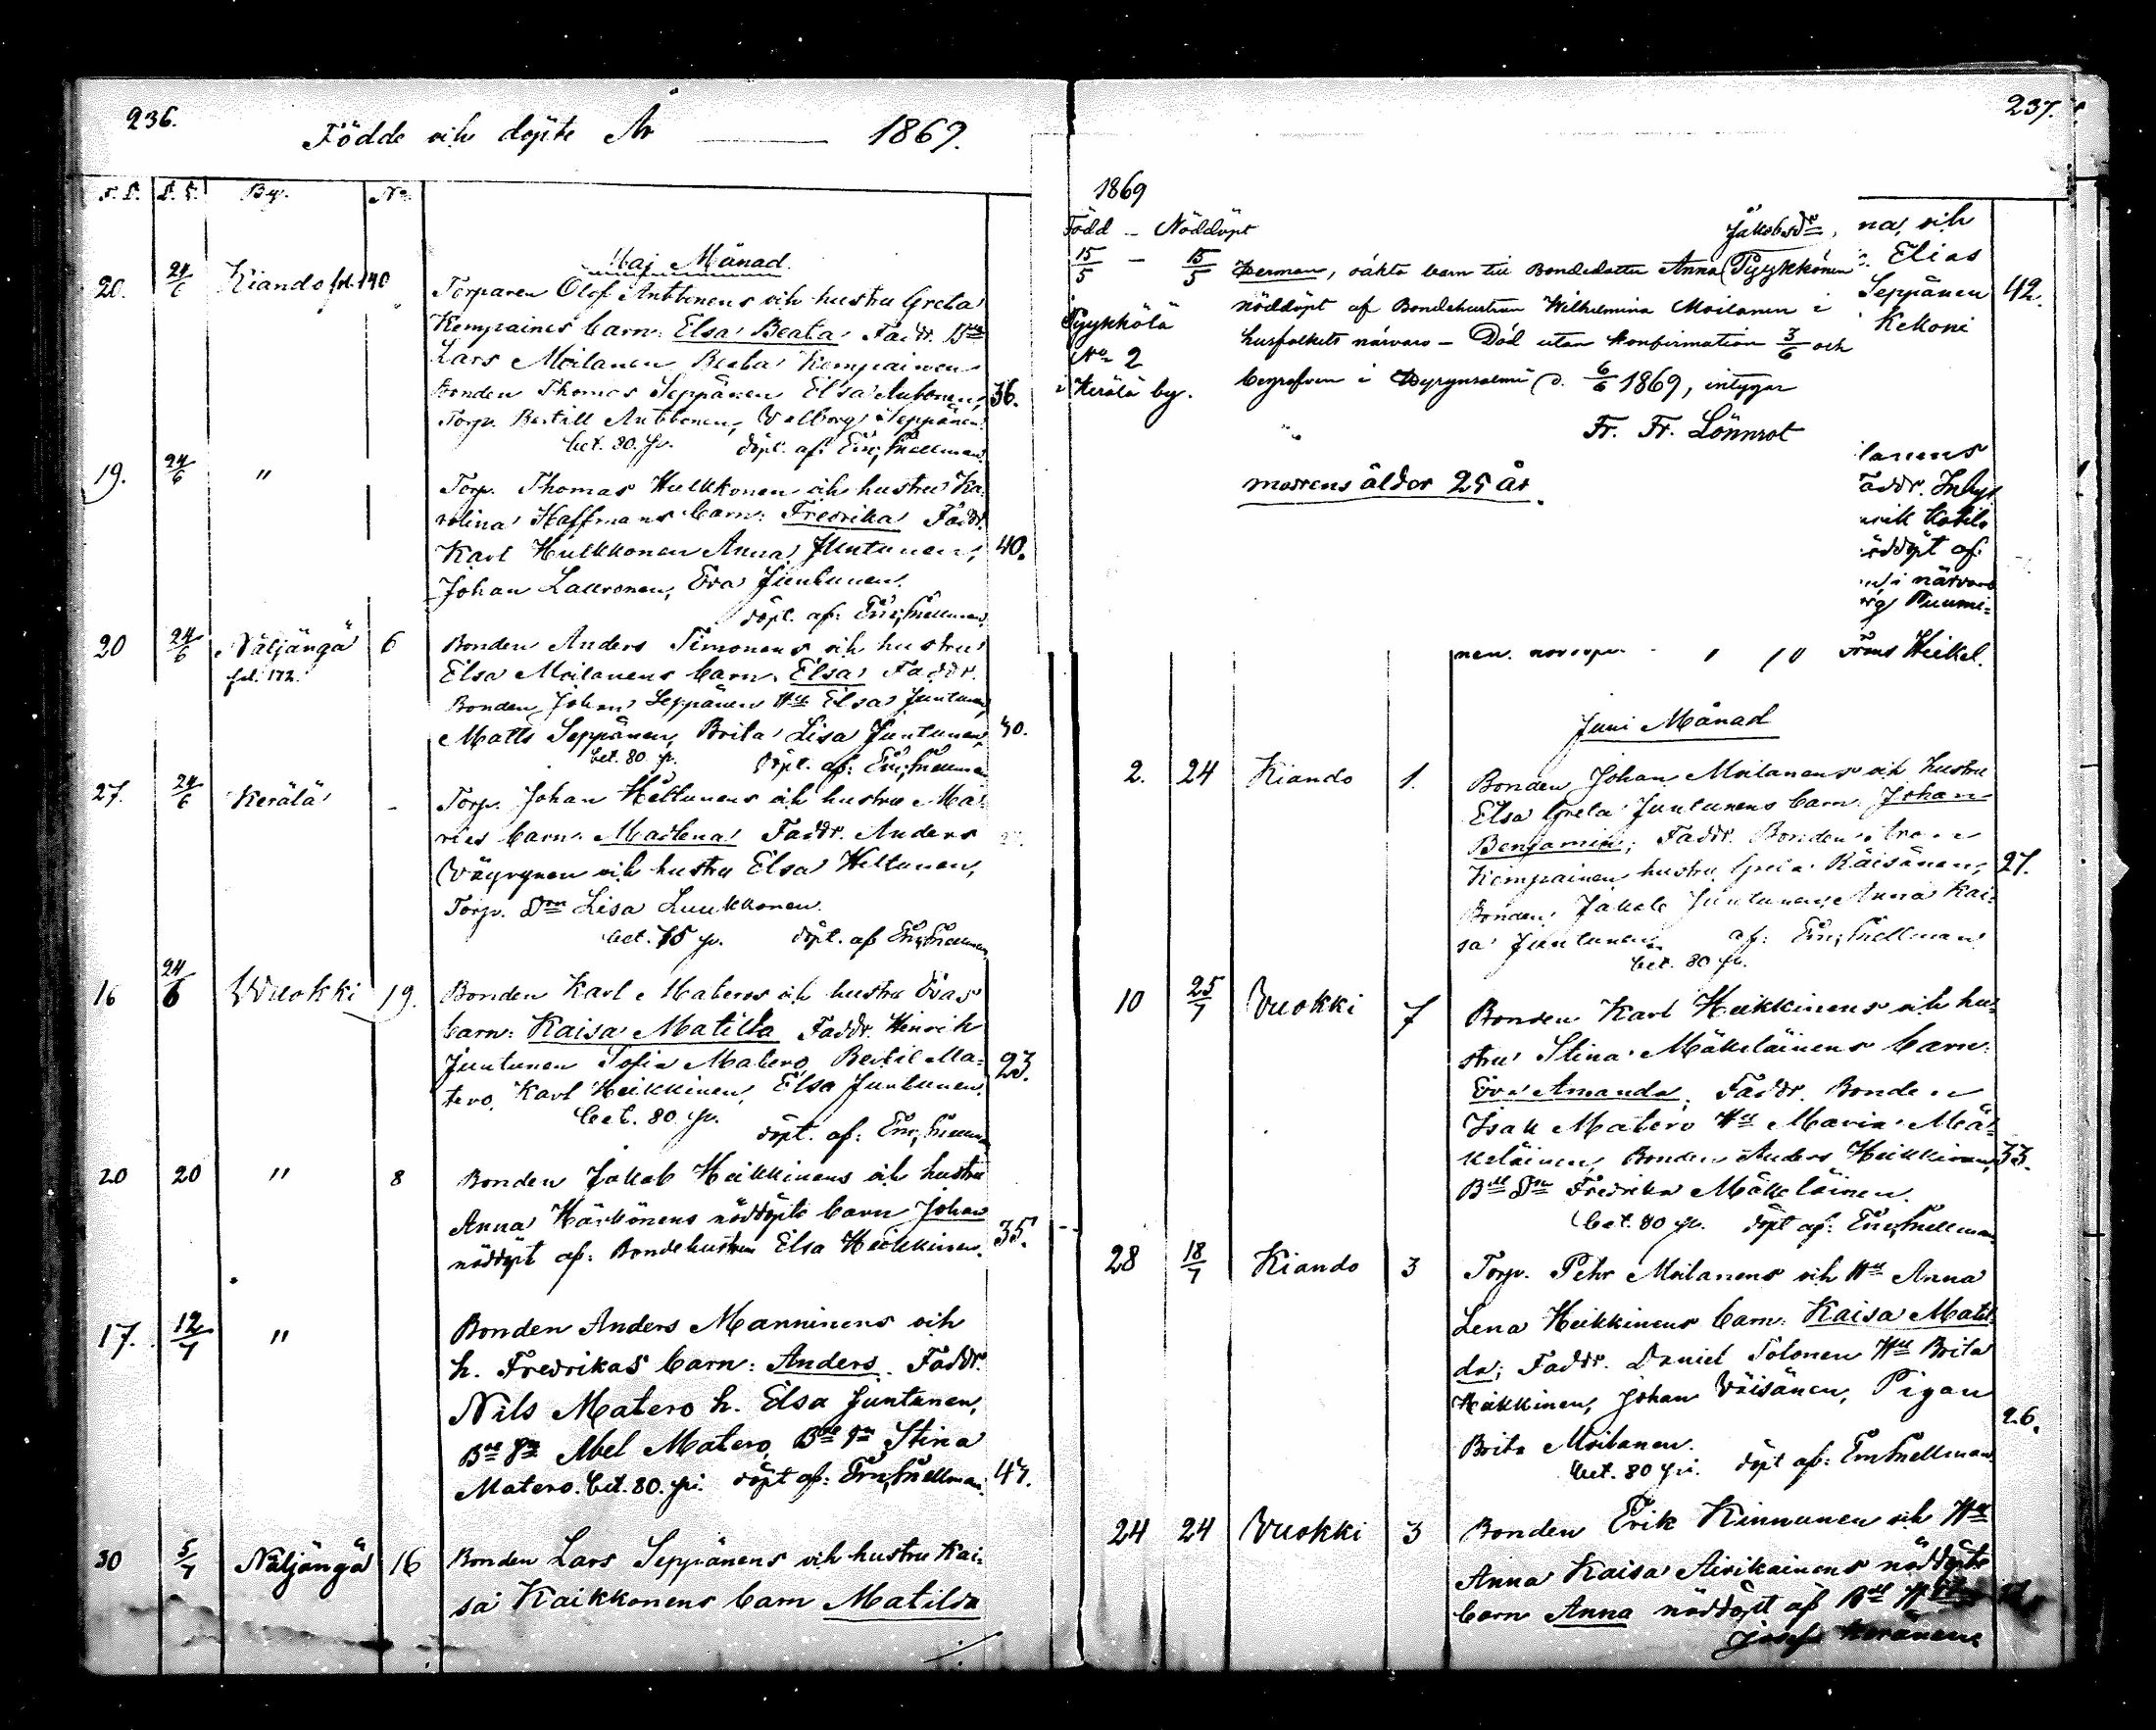 236.
Födde och döpte År 1869.
F. D. D. D. By. No
Maj Månad.
20. 24/6 Kiando fol. 140 Torparen Olof Anttonens och hustru Greta
Kempainens barn: Elsa Beata Faddr.
Lars Moilanen Beata Kempainen
Bonden Thomas Seppänen Elsa Anttonen, 36.
Torp. Bertill Anttonen, Valborg Seppänen.
bet. 80. p. döpt. af: Snellman.
19. 24/6 " Torp. Thomas Hulkkonen och hustru Ka-
rolina Haffmans barn: Fredrika Faddr.
Karl Hulkkonen Anna Juntunen, 40.
Johan Lauronen, Eva Juntunen.
döpt. af: Snellman.
20 24/6 Näljängä 6 Bonden Anders Timonens och hustru
fol. 172. Elsa Moilanens barn. Elsa Faddr.
Bonden Johan Seppänen Hu Elsa Juntunen,
Matts Seppänen, Brita Lisa Juntunen, 40.
bet. 80 p. döpt. af: Snellman
27. 24/6 Kerälä - Torp. Johan Heltunens och hustru Ma-
ries barn: Madlena Faddr. Anders
Väyrynen och hustru Elsa Heltunen,
Torp. Dtn Lisa Luukkonen.
bet. 75 p. döpt. af Snellman
16 24/6 Wuokki 19. Bonden Karl Materos och hustru Evas
barn: Kaisa Matilda Faddr. Henrik
Juntunen Sofia Matero, Bertil Ma- 23.
tero, Karl Heikkinen, Elsa Juntunen.
bet. 80 p. döpt. af: Snellman
20 20 " 8 Bonden Jakob Heikkinens och hustru
Anna Härkönens nöddöpte barn Johan
nöddöpt af: Bondehustrun Elsa Heikkinen. 35.
17. 12/7 " Bonden Anders Manninens och
h. Fredrikas barn: Anders. Faddr.
Nils Matero h. Elsa Juntunen,
Abel Matero Stina
Matero. bet. 80. p. döpt af: Snellman. 47.
30 5/7 Näljängä 16 Bonden Lars Seppänens och hustru Kai-
sa Kaikkonens barn Matilda
237.
1869
Född - Nöddöpt Jakobsdr, na, och
15/5 - 15/5 Herman, oäkta barn till Bondedotter Anna Pyykkönen Elias
nöddöpt af Bondehustrun Wilhelmina Moilanen i Seppänen 42.
Pyykkölä husfolkets närvaro - Död utan konfirmation 3/6 och Kekoni
No 2 begrafven i Hyrynsalmi d. 6/6 1869, intygar
i Kerälä by.
Fr. Fr. Lönnrot
modrens ålder 25 år.
lanens
Faddr. Inhys
nrik Kotila
öddöpt af
i närvaro
rg Puumi-
nen. Frans Heikel.
Juni Månad
2. 24 Kiando 1. Bonden Johan Moilanens och hustru
Elsa Greta Juntunens barn. Johan
Benjamin; Faddr. Bonden
Kempainen hustru Greta Räisänen, 27.
Bonden Jakob Juntunen, Anna Kai-
sa Juntunen. af: Snellman
bet. 80 p.
10 25/7 Vuokki 7 Bonden Karl Heikkinens och hu-
stru Stina Mäkeläinens barn:
Eva Amanda. Faddr. Bonden
Isak Matero Hu Maria Mä-
keläinen, Bonden Anders Heikkinen, 33.
Fredrika Mäkeläinen.
bet. 80 p. döpt af: Snellman
28 18/7 Kiando 3 Torp. Pehr Moilanens och Hu Anna
Lena Heikkinens barn: Kaisa Matil-
da; Faddr. Daniel Tolonen Hu Brita
Heikkinen, Johan Väisänen, Pigan
Brita Moilanen. 26.
bet. 80 p. döpt af: Snellman
24 24 Vuokki 3 Bonden Erik Kinnunen och Hu
Anna Kaisa Airikainens nöddöpte
barn Anna nöddöpt af
Josef Keränens